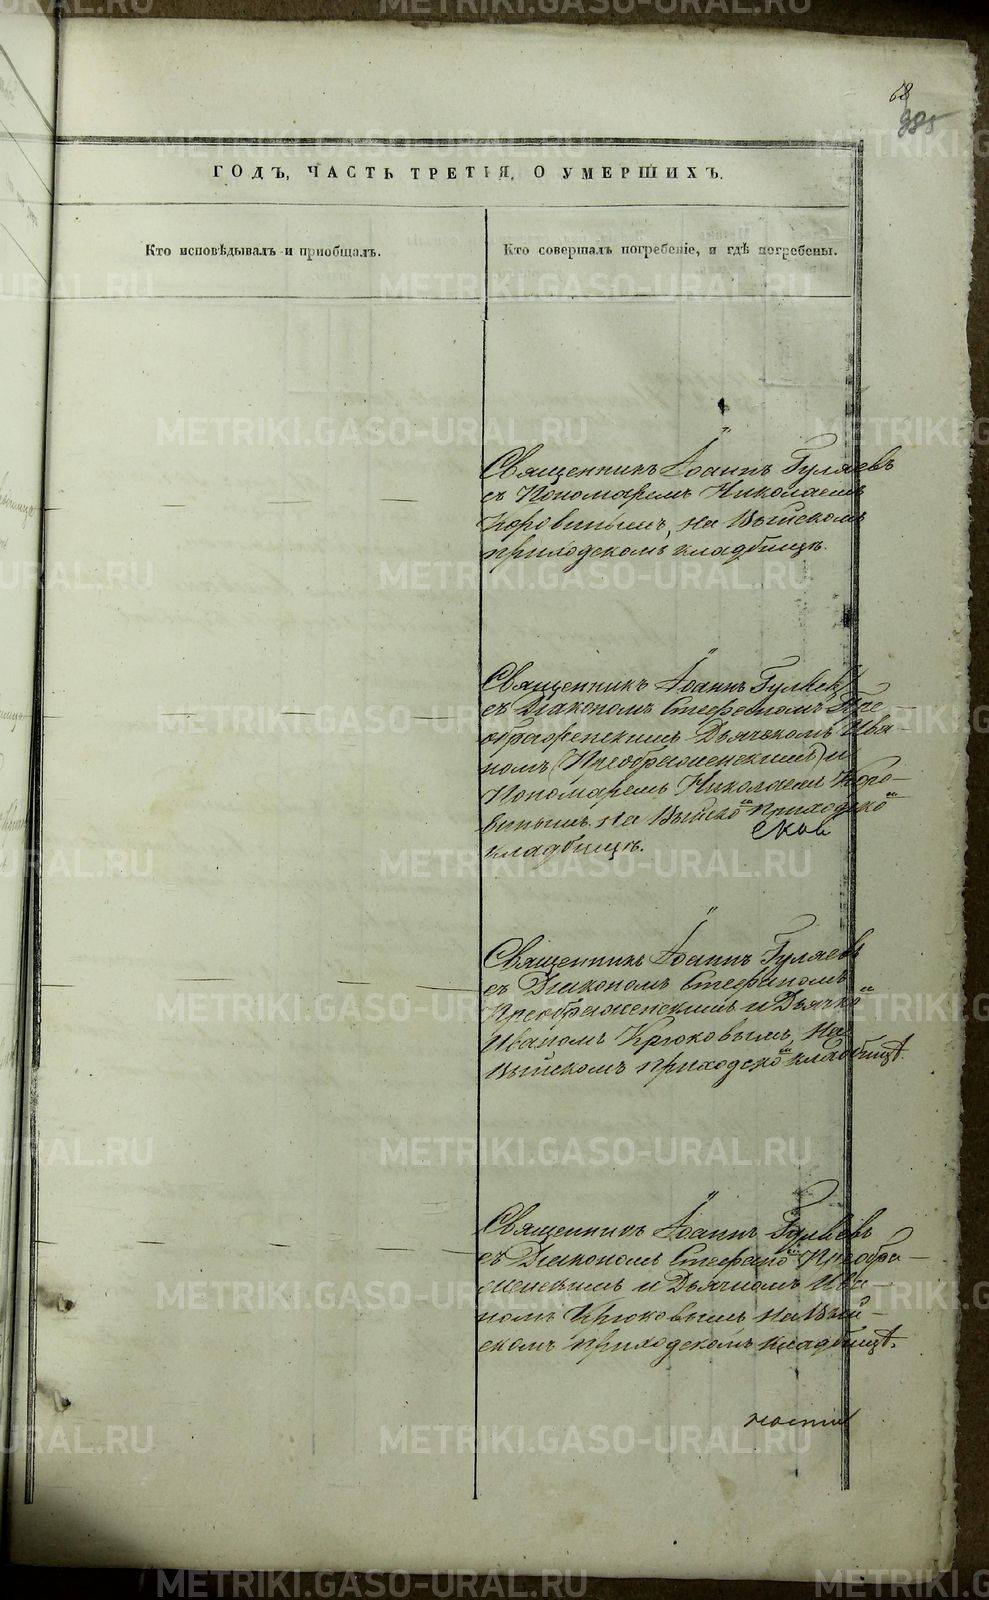 68
985
ГОДЪ, ЧАСТЬ ТРЕТІЯ, О УМЕРШИХЪ.
Кто исповѣдывалъ и пріобщалъ.
Кто совершалъ погребеніе, и гдѣ погребены.
Священникъ Іоаннъ Гуляевъ
съ Пономаремъ Николаемъ
Коровинымъ, на Выйскомъ
приходскомъ кладбищѣ.
Священникъ Іоаннъ Гуляевъ
съ Діакономъ Стефаномъ Пре-
ображенскимъ Дьячкомъ Ива-
номъ (Преображенскимъ) и
Пономаремъ Николаемъ Коро-
винымъ на Выйскомъ приходско
скою
кладбищѣ.
Священникъ Іоаннъ Гуляевъ
съ Діакономъ Стефаномъ
Преображенскимъ и Дьячко
Иваномъ Крюковымъ, на
Выйскомъ приходско кладбищѣ.
Священникъ Іоаннъ Гуляевъ
съ Діакономъ Стефано Преобра-
женскимъ и Дьячкомъ Ива-
номъ Крюковымъ на Вый-
скомъ приходскомъ кладбищѣ.
METRIKI.GASO-URAL.RU